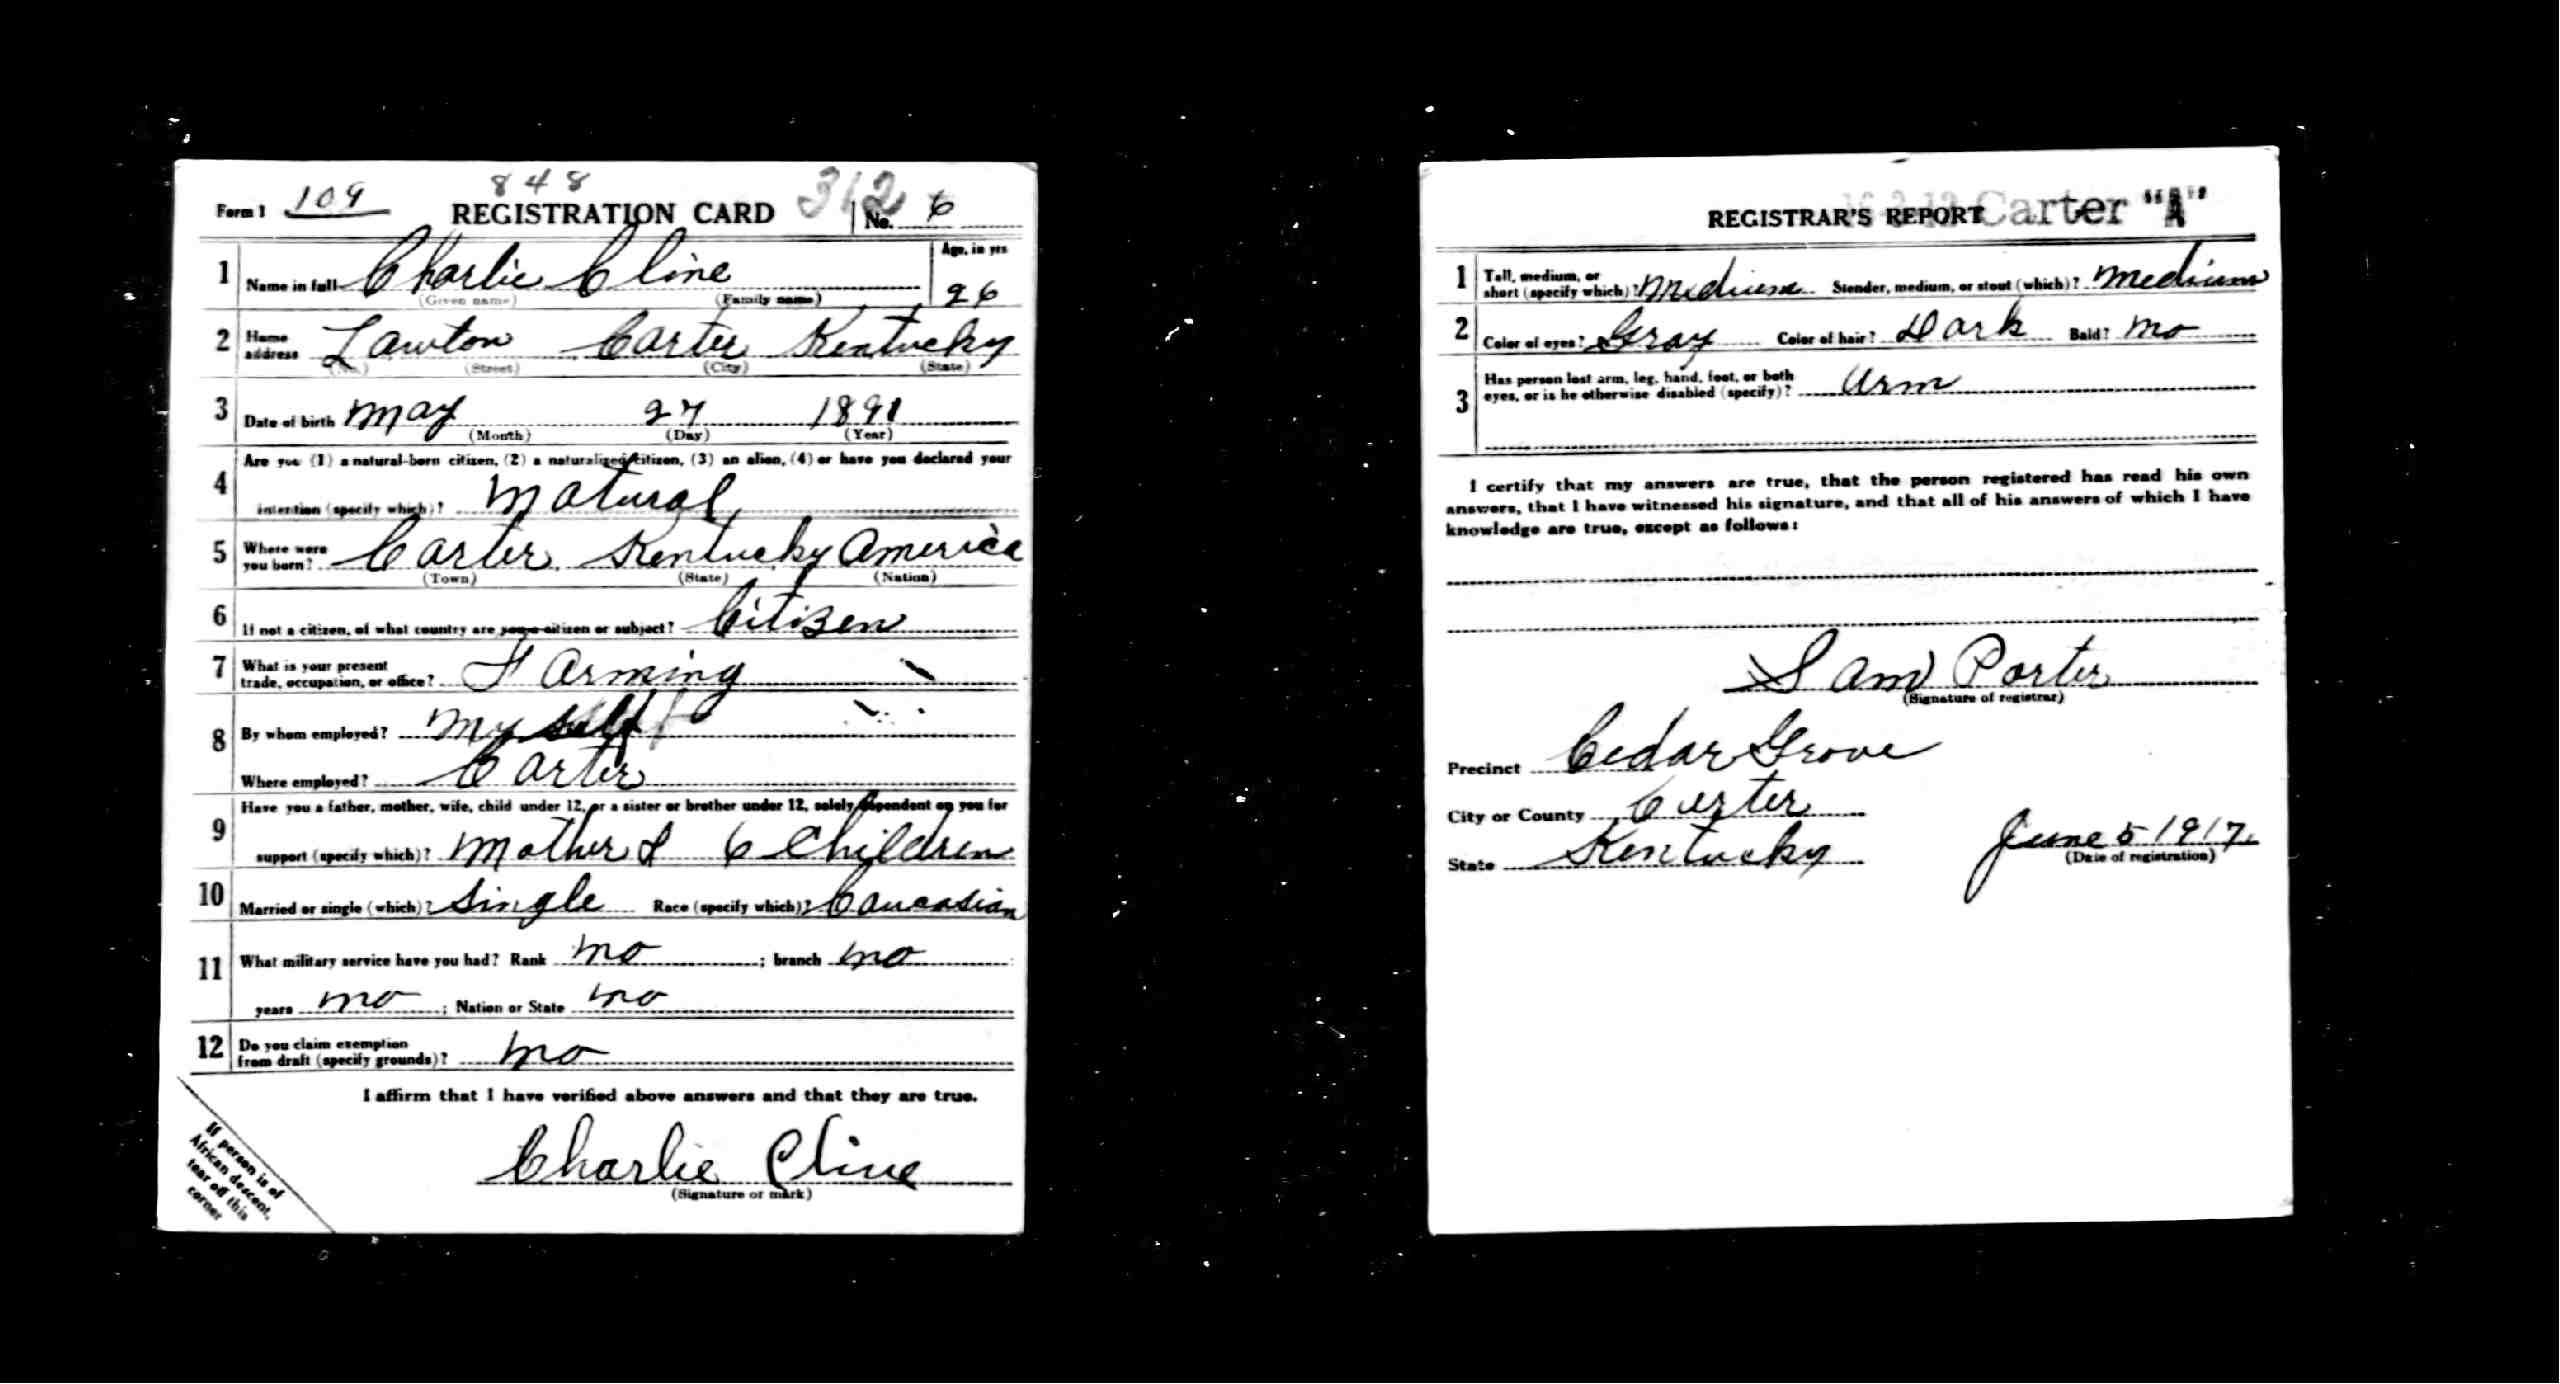 848
Form 1 109 REGISTRATION CARD 312 No. 6
1 Name in full Charlie Cline Age, in yrs
(Given name) (Family name) 26
2 Home address Lawton Carter Kentucky
(No.) (Street) (City) (State)
3 Date of birth May 27 1891
(Month) (Day) (Year)
4 Are you (1) a natural-born citizen, (2) a naturalized citizen, (3) an alien, (4) or have you declared your
intention (specify which)? Natural
5 Where were you born? Carter Kentucky America
(Town) (State) (Nation)
6 If not a citizen, of what country are you a citizen or subject? Citizen
7 What is your present
trade, occupation, or office? Farming
8 By whom employed? My self
Where employed? Carter
9 Have you a father, mother, wife, child under 12, or a sister or brother under 12, solely dependent on you for
support (specify which)? Mother & 6 Children
10 Married or single (which)? Single Race (specify which)? Caucasian
11 What military service have you had? Rank no ; branch no
years no ; Nation or State no
12 Do you claim exemption
from draft (specify grounds)? no
I affirm that I have verified above answers and that they are true.
Charlie Cline
(Signature or mark)
If person is of
African descent,
tear off this
corner
REGISTRAR'S REPORT Carter "A"
1 Tall, medium, or
short (specify which)? Medium Slender, medium, or stout (which)? Medium
2 Color of eyes? Gray Color of hair? Dark Bald? no
3 Has person lost arm, leg, hand, foot, or both
eyes, or is he otherwise disabled (specify)? Arm
I certify that my answers are true, that the person registered has read his own
answers, that I have witnessed his signature, and that all of his answers of which I have
knowledge are true, except as follows:
Sam Porter
(Signature of registrar)
Precinct Cedar Grove
City or County Carter
State Kentucky June 5 1917
(Date of registration)